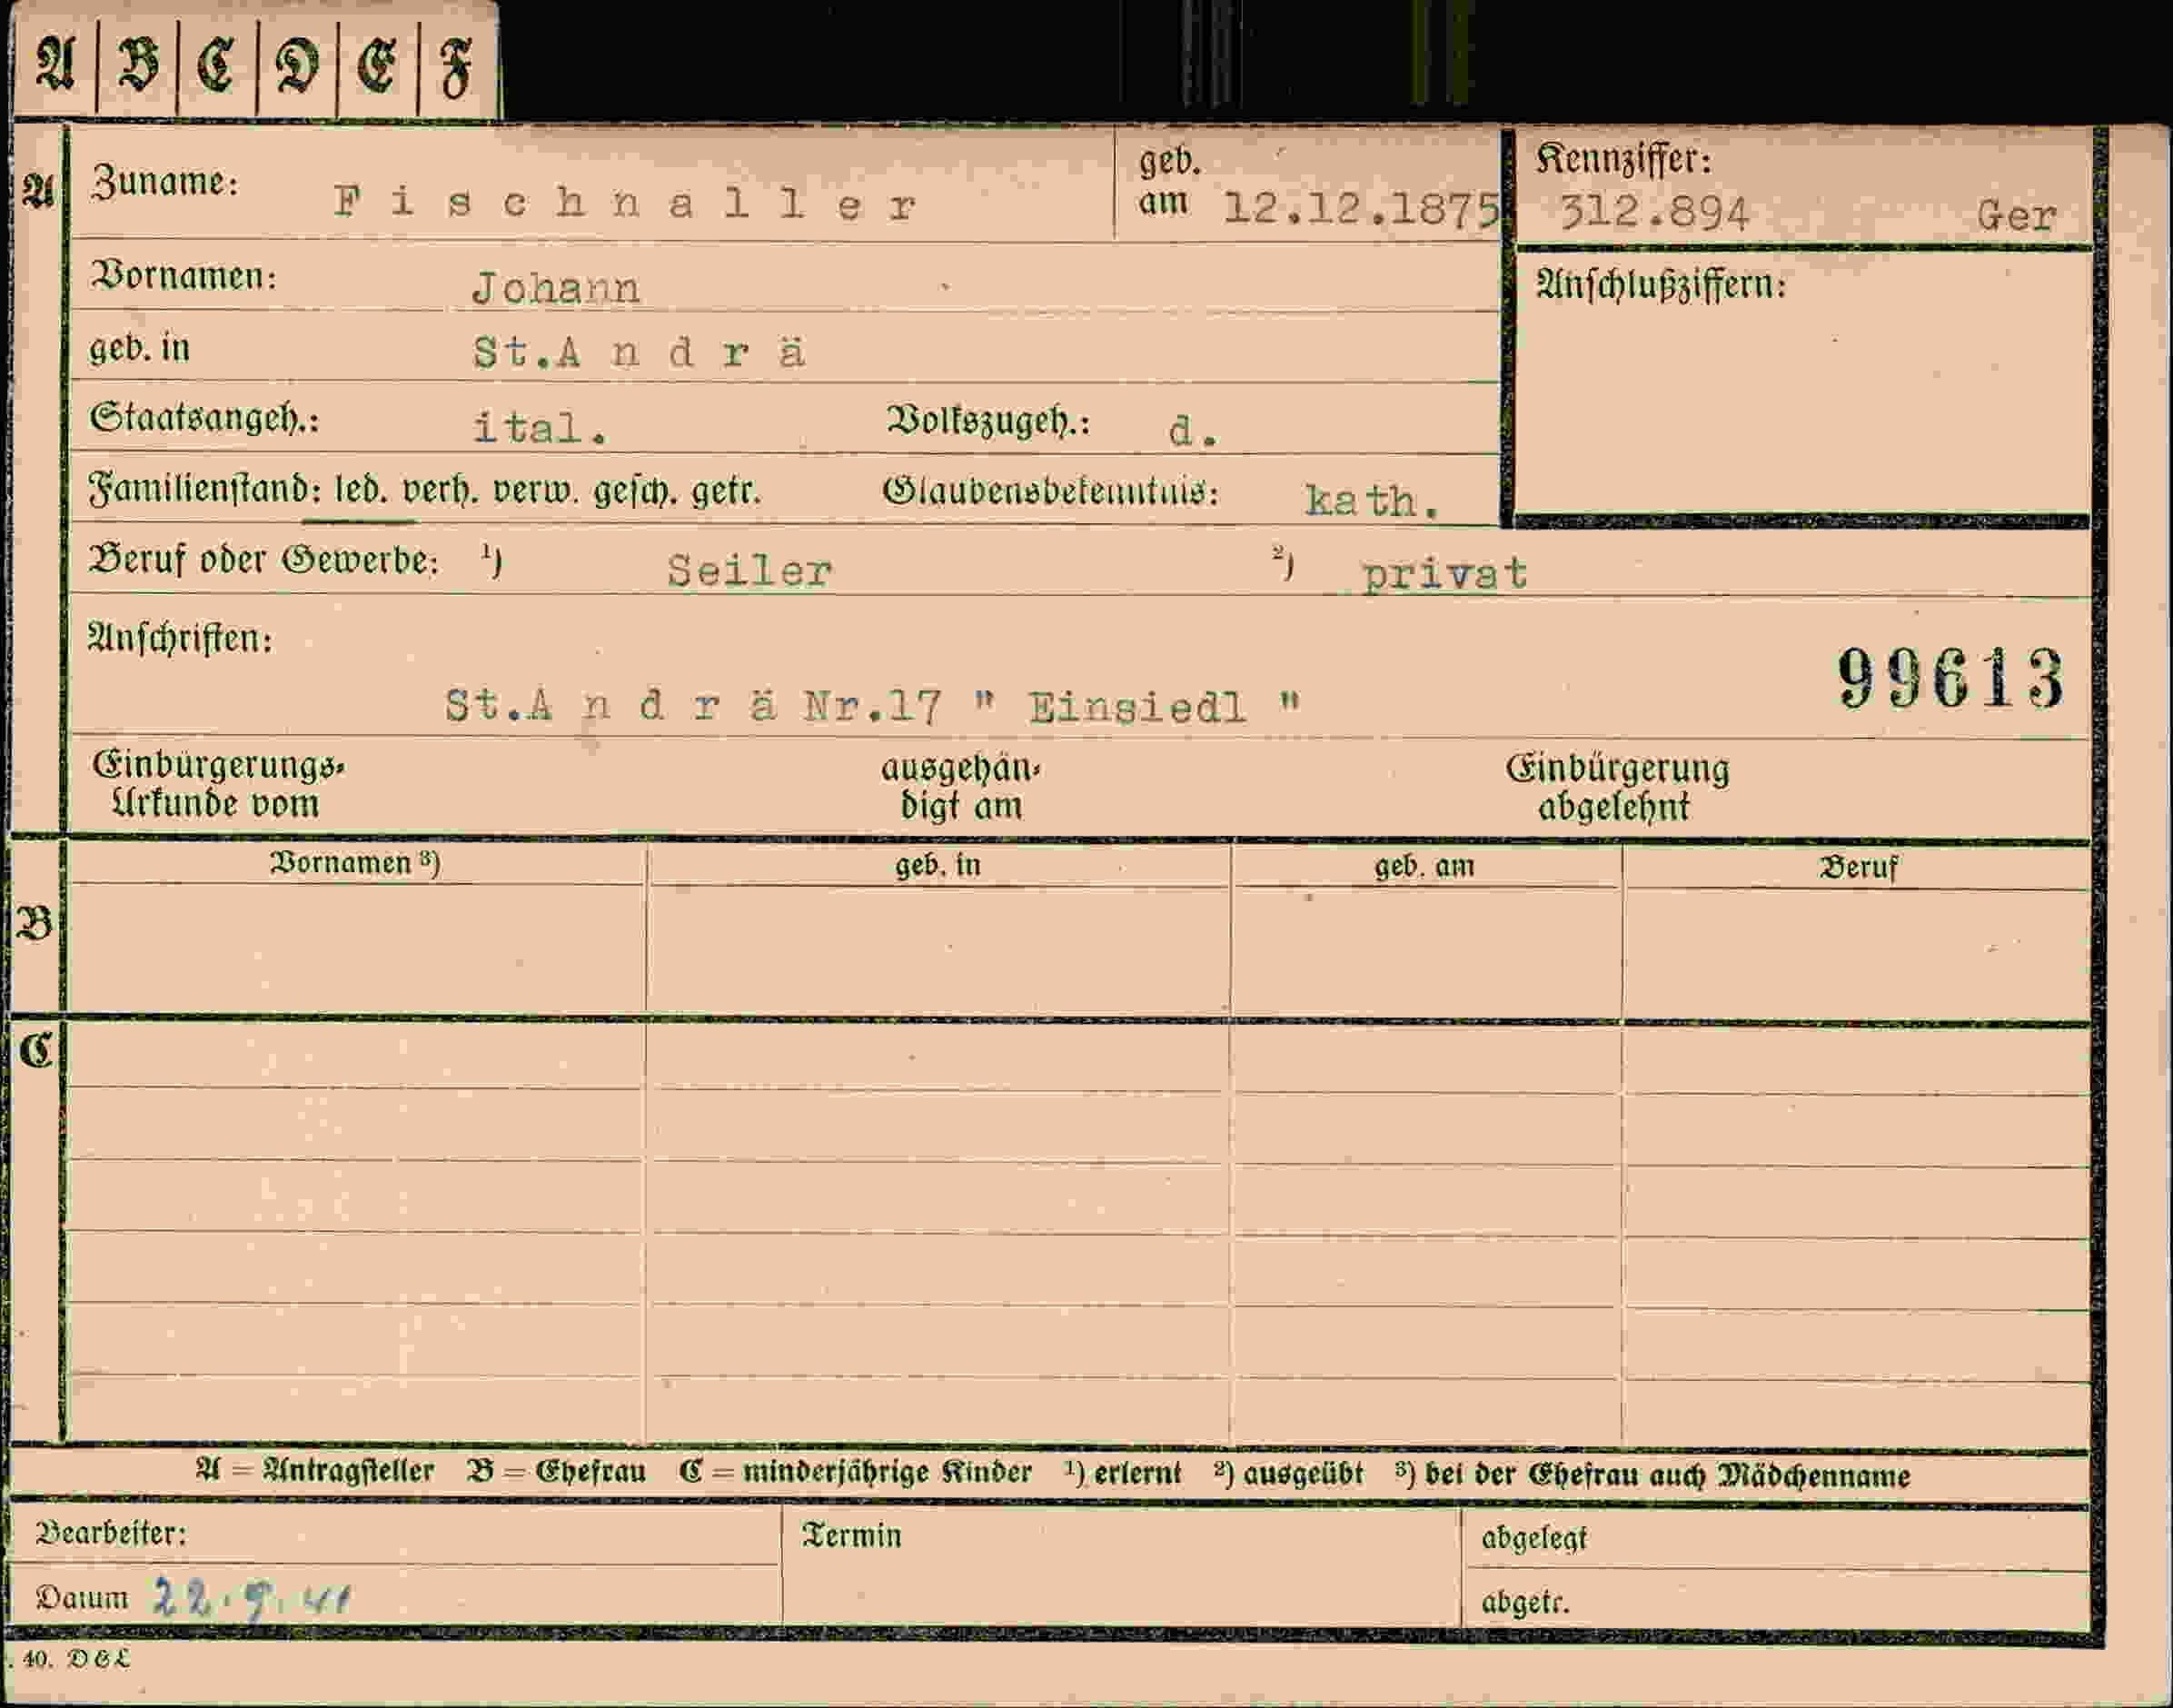 A B C D E F
A Zuname: Fischnaller geb. am 12.12.1875 Kennziffer: 312.894 Ger
Vornamen: Johann Anschlußziffern:
geb. in St.Andrä
Staatsangeh.: ital. Volkszugeh.: d.
Familienstand: led. verh. verw. gesch. getr. Glaubensbekenntnis: kath.
Beruf oder Gewerbe: 1) Seiler 2) privat
Anschriften: 99613
St.Andrä Nr.17 " Einsiedl "
Einbürgerungs- ausgehän- Einbürgerung
Urkunde vom digt am abgelehnt
Vornamen 3) geb. in geb. am Beruf
B
C
A = Antragsteller B = Ehefrau C = minderjährige Kinder 1) erlernt 2) ausgeübt 3) bei der Ehefrau auch Mädchenname
Bearbeiter: Termin abgelegt
Datum 22.9.41 abgetr.
. 40.